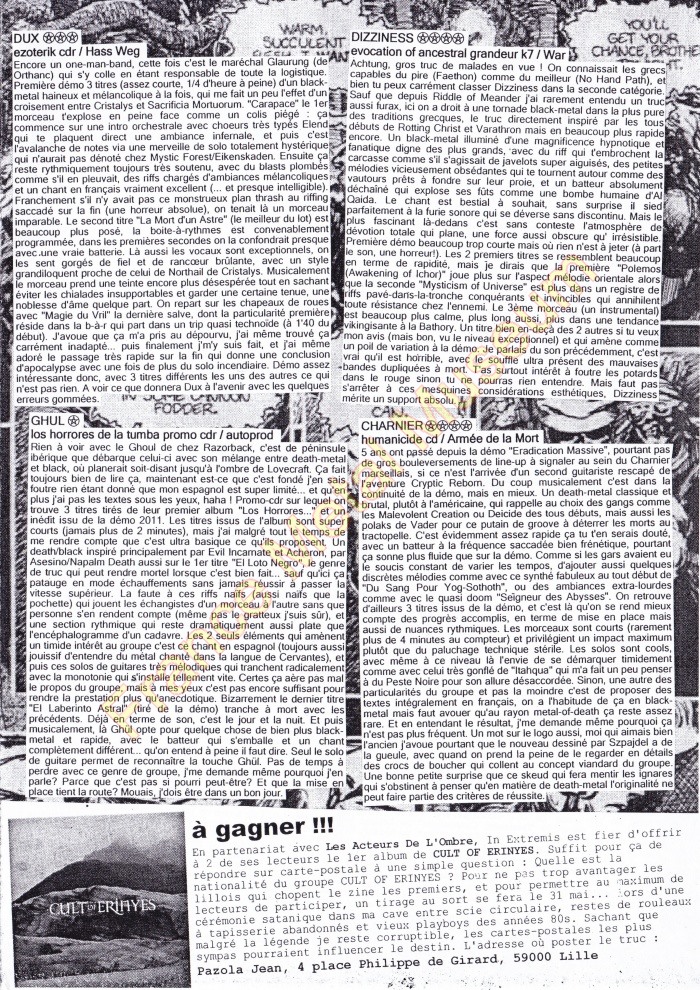 WARM,
SUCCULENT
YOU'LL
GET YOUR
CHANCE, BROTHE
DUX
ezoterik cdr / Hass Weg
Encore un one-man-band, cette fois c'est le maréchal Glaurung (de
Orthanc) qui s'y colle en étant responsable de toute la logistique.
Première démo 3 titres (assez courte, 1/4 d'heure à peine) d'un black-
metal haineux et mélancolique à la fois, qui me fait un peu l'effet d'un
croisement entre Cristalys et Sacrificia Mortuorum. "Carapace" le 1er
morceau t'explose en peine face comme un colis piégé : ça
commence sur une intro orchestrale avec choeurs très typés Elend
qui te plaquent direct une ambiance infernale, et puis c'est
l'avalanche de notes via une merveille de solo totalement hystérique
qui n'aurait pas dénoté chez Mystic Forest/Eikenskaden. Ensuite ça
reste rythmiquement toujours très soutenu, avec du blasts plombés
comme s'il en pleuvait, des riffs chargés d'ambiances mélancoliques
et un chant en français vraiment excellent (... et presque intelligible).
Franchement s'il n'y avait pas ce monstrueux plan thrash au riffing
saccadé sur la fin (une horreur absolue), on tenait là un morceau
imparable. Le second titre "La Mort d'un Astre" (le meilleur du lot) est
beaucoup plus posé, la boite-à-rythmes est convenablement
programmée, dans les premières secondes on la confondrait presque
avec une vraie batterie. Là aussi les vocaux sont exceptionnels, on
les sent gorgés de fiel et de rancœur brûlante, avec un style
grandiloquent proche de celui de Northail de Cristalys. Musicalement
le morceau prend une teinte encore plus désespérée tout en sachant
éviter les chialades insupportables et garder une certaine tenue, une
noblesse d'âme quelque part. On repart sur les chapeaux de roues
avec "Magie du Vril" la dernière salve, dont la particularité première
réside dans la b-à-r qui part dans un trip quasi technoïde (à 1'40 du
début). J'avoue que ça m'a pris au dépourvu, j'ai même trouvé ça
carrément inadapté... puis finalement j'm'y suis fait, et j'ai même
adoré le passage très rapide sur la fin qui donne une conclusion
d'apocalypse avec une fois de plus du solo incendiaire. Démo assez
intéressante donc, avec 3 titres différents les uns des autres ce qui
n'est pas rien. A voir ce que donnera Dux à l'avenir avec les quelques
erreurs gommées.
DIZZINESS
evocation of ancestral grandeur k7 / War
Achtung, gros truc de malades en vue ! On connaissait les grecs
capables du pire (Faethon) comme du meilleur (No Hand Path), et
bien tu peux carrément classer Dizziness dans la seconde catégorie.
Sauf que depuis Riddle of Meander j'ai rarement entendu un truc
aussi furax, ici on a droit à une tornade black-metal dans la plus pure
des traditions grecques, le truc directement inspiré par tous les
débuts de Rotting Christ et Varathron mais en beaucoup plus rapide
encore. Un black-metal illuminé d'une magnificence hypnotique et
fanatique digne des plus grands, avec du riff qui t'embrochent la
carcasse comme s'il s'agissait de javelots super aiguisés, des petites
mélodies vicieusement obsédantes qui te tournent autour comme des
vautours prêts à fondre sur leur proie, et un batteur absolument
déchaîné qui explose ses fûts comme une bombe humaine d'Al
Qaida. Le chant est bestial à souhait, sans surprise il sied
parfaitement à la furie sonore qui se déverse sans discontinu. Mais le
plus fascinant là-dedans c'est sans conteste l'atmosphère de
dévotion totale qui plane, une force aussi obscure qu' irrésistible.
Première démo beaucoup trop courte mais où rien n'est à jeter (à part
le son, une horreur!). Les 2 premiers titres se ressemblent beaucoup
en terme de rapidité, mais je dirais que la première "Polemos
(Awakening of Ichor)" joue plus sur l'aspect mélodie orientale alors
que la seconde "Mysticism of Universe" est plus dans un registre de
riffs pavé-dans-la-tronche conquérants et invincibles qui annihilent
toute résistance chez l'ennemi. Le 3ème morceau (un instrumental)
est beaucoup plus calme, plus long aussi, plus dans une tendance
vikingisante à la Bathory. Un titre bien en-deçà des 2 autres si tu veux
mon avis (mais bon, vu le niveau exceptionnel) et qui amène comme
un poil de variation à la démo. Je parlais du son précédemment, c'est
vrai qu'il est horrible, avec ce souffle ultra présent des mauvaises
bandes dupliquées à mort. T'as surtout intérêt à foutre les potards
dans le rouge sinon tu ne pourras rien entendre. Mais faut pas
s'arrêter à ces mesquines considérations esthétiques, Dizziness
mérite un support absolu.
FODDER.
CAN.
GHUL
los horrores de la tumba promo cdr / autoprod
Rien à voir avec le Ghoul de chez Razorback, c'est de péninsule
ibérique que débarque celui-ci avec son mélange entre death-metal
et black, où planerait soit-disant jusqu'à l'ombre de Lovecraft. Ça fait
toujours bien de lire ça, maintenant est-ce que c'est fondé j'en sais
foutre rien étant donné que mon espagnol est super limité... et qu'en
plus j'ai pas les textes sous les yeux, haha ! Promo-cdr sur lequel on
trouve 3 titres tirés de leur premier album "Los Horrores..." et un
inédit issu de la démo 2011. Les titres issus de l'album sont super
courts (jamais plus de 2 minutes), mais j'ai malgré tout le temps de
me rendre compte que c'est ultra basique ce qu'ils proposent. Un
death/black inspiré principalement par Evil Incarnate et Acheron, par
Asesino/Napalm Death aussi sur le 1er titre "El Loto Negro", le genre
de truc qui peut rendre mortel lorsque c'est bien fait... sauf qu'ici ça
patauge en mode échauffements sans jamais réussir à passer la
vitesse supérieur. La faute à ces riffs naïfs (aussi naïfs que la
pochette) qui jouent les échangistes d'un morceau à l'autre sans que
personne s'en rendent compte (même pas le gratteux j'suis sûr), et
une section rythmique qui reste dramatiquement aussi plate que
l'encéphalogramme d'un cadavre. Les 2 seuls éléments qui amènent
un timide intérêt au groupe c'est le chant en espagnol (toujours aussi
jouissif d'entendre du métal chanté dans la langue de Cervantes), et
puis ces solos de guitares très mélodiques qui tranchent radicalement
avec la monotonie qui s'installe tellement vite. Certes ça aère pas mal
le propos du groupe, mais à mes yeux c'est pas encore suffisant pour
rendre la prestation plus qu'anecdotique. Bizarrement le dernier titre
"El Laberinto Astral" (tiré de la démo) tranche à mort avec les
précédents. Déjà en terme de son, c'est le jour et la nuit. Et puis
musicalement, là Ghül opte pour quelque chose de bien plus black-
metal et rapide, avec le batteur qui s'emballe et un chant
complètement différent... qu'on entend à peine il faut dire. Seul le solo
de guitare permet de reconnaître la touche Ghül. Pas de temps à
perdre avec ce genre de groupe, j'me demande même pourquoi j'en
parle? Parce que c'est pas si pourri peut-être? Et que la mise en
place tient la route? Mouais, j'dois être dans un bon jour.
CHARNIER
humanicide cd / Armée de la Mort
5 ans ont passé depuis la démo "Eradication Massive", pourtant pas
de gros bouleversements de line-up à signaler au sein du Charnier
marseillais, si ce n'est l'arrivée d'un second guitariste rescapé de
l'aventure Cryptic Reborn. Du coup musicalement c'est dans la
continuité de la démo, mais en mieux. Un death-metal classique et
brutal, plutôt à l'américaine, qui rappelle au choix des gangs comme
les Malevolent Creation ou Deicide des tous débuts, mais aussi les
polaks de Vader pour ce putain de groove à déterrer les morts au
tractopelle. C'est évidemment assez rapide ça tu t'en serais douté,
avec un batteur à la fréquence saccadée bien frénétique, pourtant
ça sonne plus fluide que sur la démo. Comme si les gars avaient eu
le soucis constant de varier les tempos, d'ajouter aussi quelques
discrètes mélodies comme avec ce synthé fabuleux au tout début de
"Du Sang Pour Yog-Sothoth", ou des ambiances extra-lourdes
comme avec le quasi doom "Seigneur des Abysses". On retrouve
d'ailleurs 3 titres issus de la demo, et c'est là qu'on se rend mieux
compte des progrès accomplis, en terme de mise en place mais
aussi de nuances rythmiques. Les morceaux sont courts (rarement
plus de 4 minutes au compteur) et privilégient un impact maximum
plutôt que du paluchage technique stérile. Les solos sont cools,
avec même à ce niveau là l'envie de se démarquer timidement
comme avec celui très gonflé de "Itahqua" qui m'a fait un peu penser
à du Peste Noire pour son allure désaccordée. Sinon, une autre des
particularités du groupe et pas la moindre c'est de proposer des
textes intégralement en français, on a l'habitude de ça en black-
metal mais faut avouer qu'au rayon metal-of-death ça reste assez
rare. Et en entendant le résultat, j'me demande même pourquoi ça
n'est pas plus fréquent. Un mot sur le logo aussi, moi qui aimais bien
l'ancien j'avoue pourtant que le nouveau dessiné par Szpajdel a de
la gueule, avec quand on prend la peine de le regarder en détails
des crocs de boucher qui collent au concept viandard du groupe.
Une bonne petite surprise que ce skeud qui fera mentir les ignares
qui s'obstinent à penser qu'en matière de death-metal l'originalité ne
peut faire partie des critères de réussite.
CULT OF ERINYES
à gagner !!!
En partenariat avec Les Acteurs De L'Ombre, In Extremis est fier d'offrir
à 2 de ses lecteurs le 1er album de CULT OF ERINYES. Suffit pour ça de
répondre sur carte-postale à une simple question : Quelle est la
nationalité du groupe CULT OF ERINYES ? Pour ne pas trop avantager les
lillois qui chopent le zine les premiers, et pour permettre au maximum de
lecteurs de participer, un tirage au sort se fera le 31 mai... lors d'une
cérémonie satanique dans ma cave entre scie circulaire, restes de rouleaux
à tapisserie abandonnés et vieux playboys des années 80s. Sachant que
malgré la légende je reste corruptible, les cartes-postales les plus
sympas pourraient influencer le destin. L'adresse où poster le truc :
Pazola Jean, 4 place Philippe de Girard, 59000 Lille